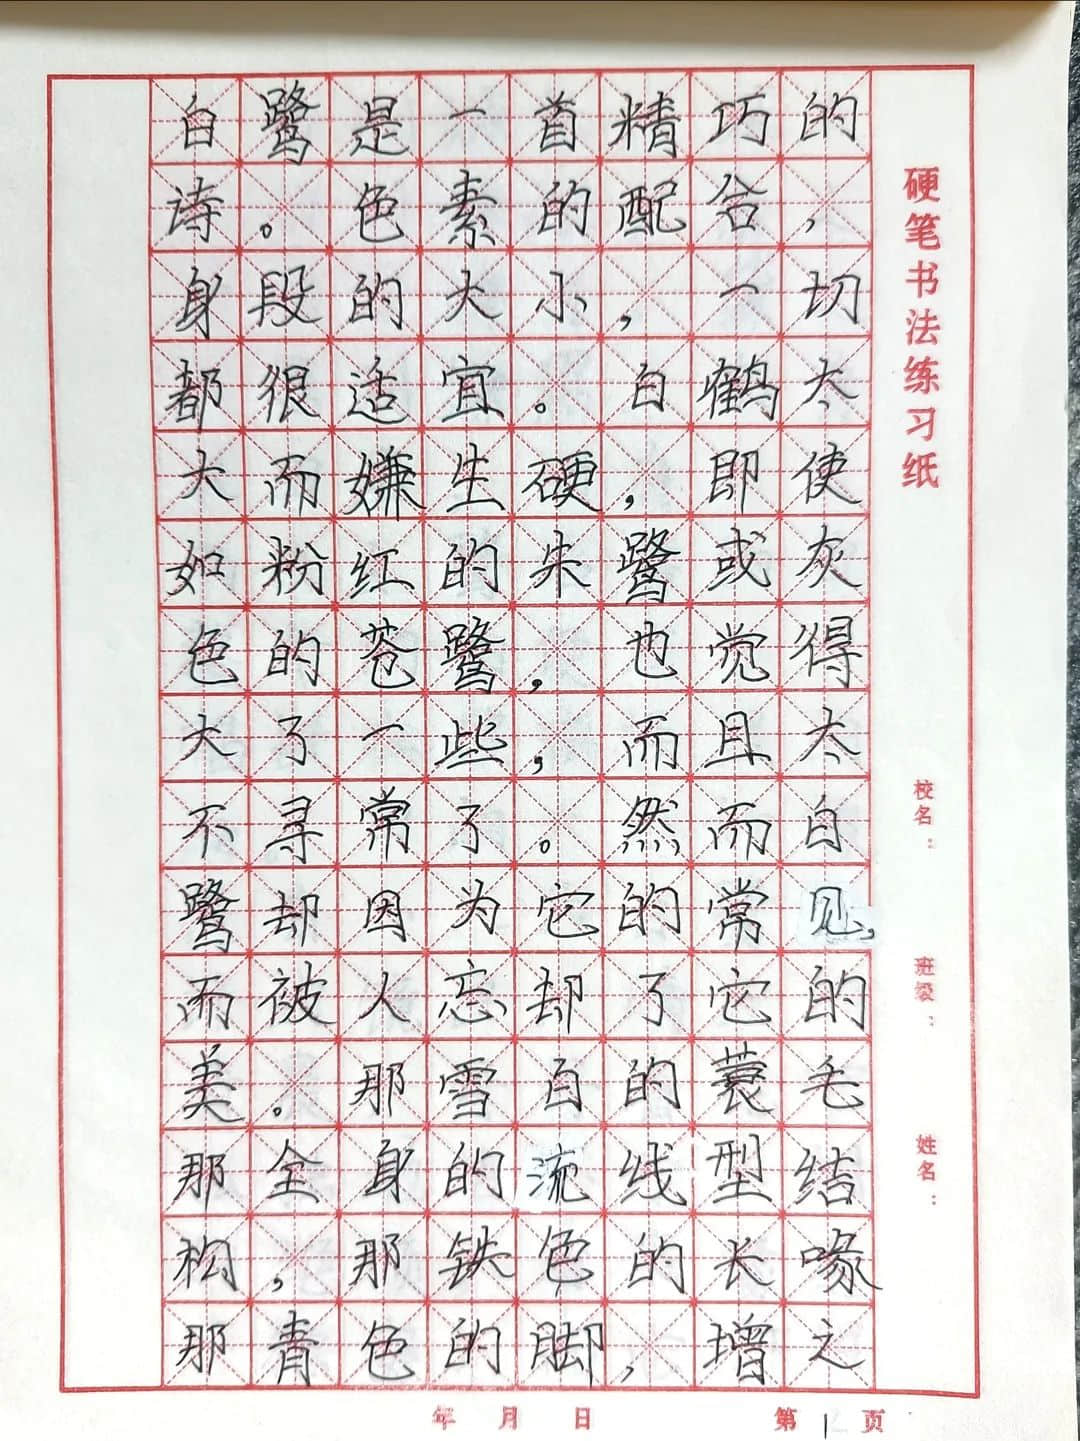 白鹭是一首精巧的
诗。色素的配合，
身段的大小，一切
都很适宜。白鹤太
大而嫌生硬，即使
如粉红的朱鹭或灰
色的苍鹭，也觉得
大了一些，而且太
不寻常了。然而白
鹭却因为它的常见，
而被人忘却了它的
美。那雪白的蓑毛
那全身的流线型结
构，那铁色的长喙
那青色的脚，增之
硬笔书法练习纸
校名：
班级：
姓名：
年 月 日
第 1 页